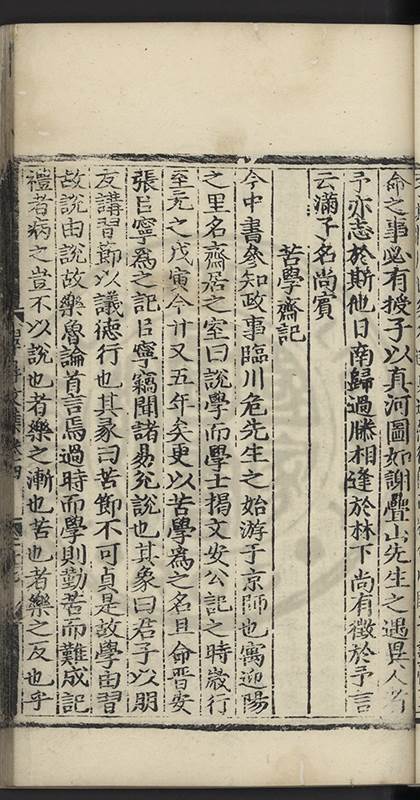 命之事必有授子以真河圖如謝疊山先生之遇異人者
予亦志於斯他日南歸過滕相逢於林下尚有徵於予言
云滿子名尚賓
苦學齋記
今中書參知政事臨川危先生之始游于京師也寓迎陽
之里名齋居之室曰說學而學士揭文安公記之時歲行
至元之戊寅今廿又五年矣更以苦學為之名且命晋安
張㠯寧為之記㠯寧竊聞諸昜兊說也其象曰君子以朋
友講習節以議德行也其彖曰苦節不可貞是故學由習
故說由說故樂魯論首言焉過時而學則勤苦而難成記
禮者病之豈不以說也者樂之漸也苦也者樂之反也乎